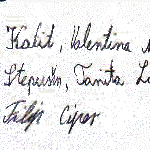 Kalit, Valentina
Stepušin, Tanita
Filip Cipar